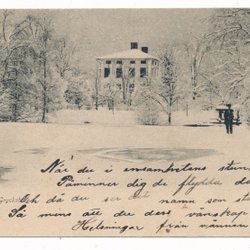 När du i ensamhetens stun
Påminner dig de flydda da
Och då du ser ett namn som st
Så mins att du ders vänskap
Helsningar från vännen